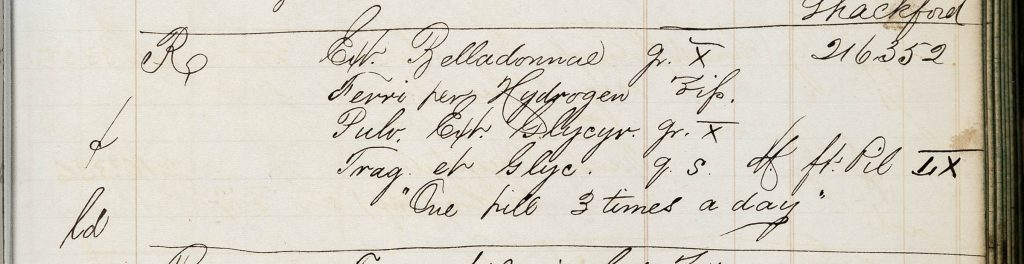 Shackford
℞ Ext. Belladonnae gr. X 216352
Ferri per Hydrogen ʒiſs.
Pulv. Ext. Glycyr. gr. X
Trag. et Glyc. q. s. M. ft. Pil LX
"One pill 3 times a day"